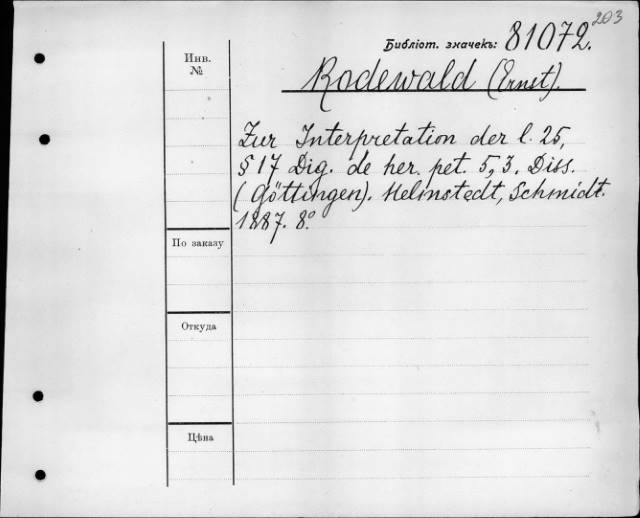 203
Библіот. значекъ: 81072.
Инв.
№
Rodewald (Ernst).
Zur Interpretation der l. 25,
§ 17 Dig. de her. pet. 5, 3. Diss.
(Göttingen). Helmstedt, Schmidt.
1887. 8°.
По заказу
Откуда
Цѣна